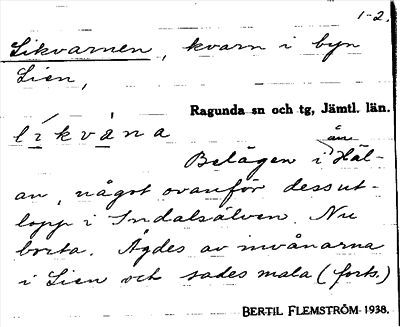 1-2.
Likvarnen, kvarn i byn
Lien,
Ragunda sn och tg, Jämtl. län.
líkvàna
Belägen i ån Häl-
an, något ovanför dess ut-
lopp i Indalsälven. Nu
borta. Ägdes av invånarna
i Lien och sades mala (forts.)
BERTIL FLEMSTRÖM 1938.